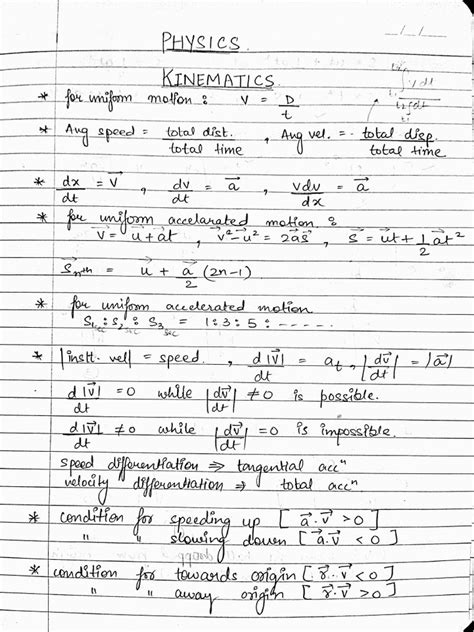 PHYSICS.
KINEMATICS
* for uniform motion : V = D/t
* Avg speed = total dist. / total time , Avg vel. = total disp. / total time
* dx/dt = v⃗ , dv/dt = a⃗ , vdv/dx = a⃗
* for uniform accelarated motion :
v⃗ = u⃗ + a⃗t , v⃗² - u⃗² = 2a⃗s⃗ , s⃗ = u⃗t + 1/2 a⃗t²
S⃗nᵗʰ = u⃗ + a⃗/2 (2n-1)
* for uniform accelerated motion
S₁sec : S₂sec : S₃sec = 1 : 3 : 5 : - - - - - .
* |instt. vel| = speed , d|v⃗|/dt = aₜ , |dv⃗/dt| = |a⃗|
d|v⃗|/dt = 0 while |dv⃗/dt| ≠ 0 is possible.
d|v⃗|/dt ≠ 0 while |dv⃗/dt| = 0 is impossible.
speed differentiation ⇒ tangential accⁿ
velocity differentiation ⇒ total accⁿ
* condition for speeding up [ a⃗.v⃗ > 0 ]
" " slowing down [ a⃗.v⃗ < 0 ]
* condition for towards origin [ r⃗.v⃗ < 0 ]
" " away origin [ r⃗.v⃗ > 0 ]